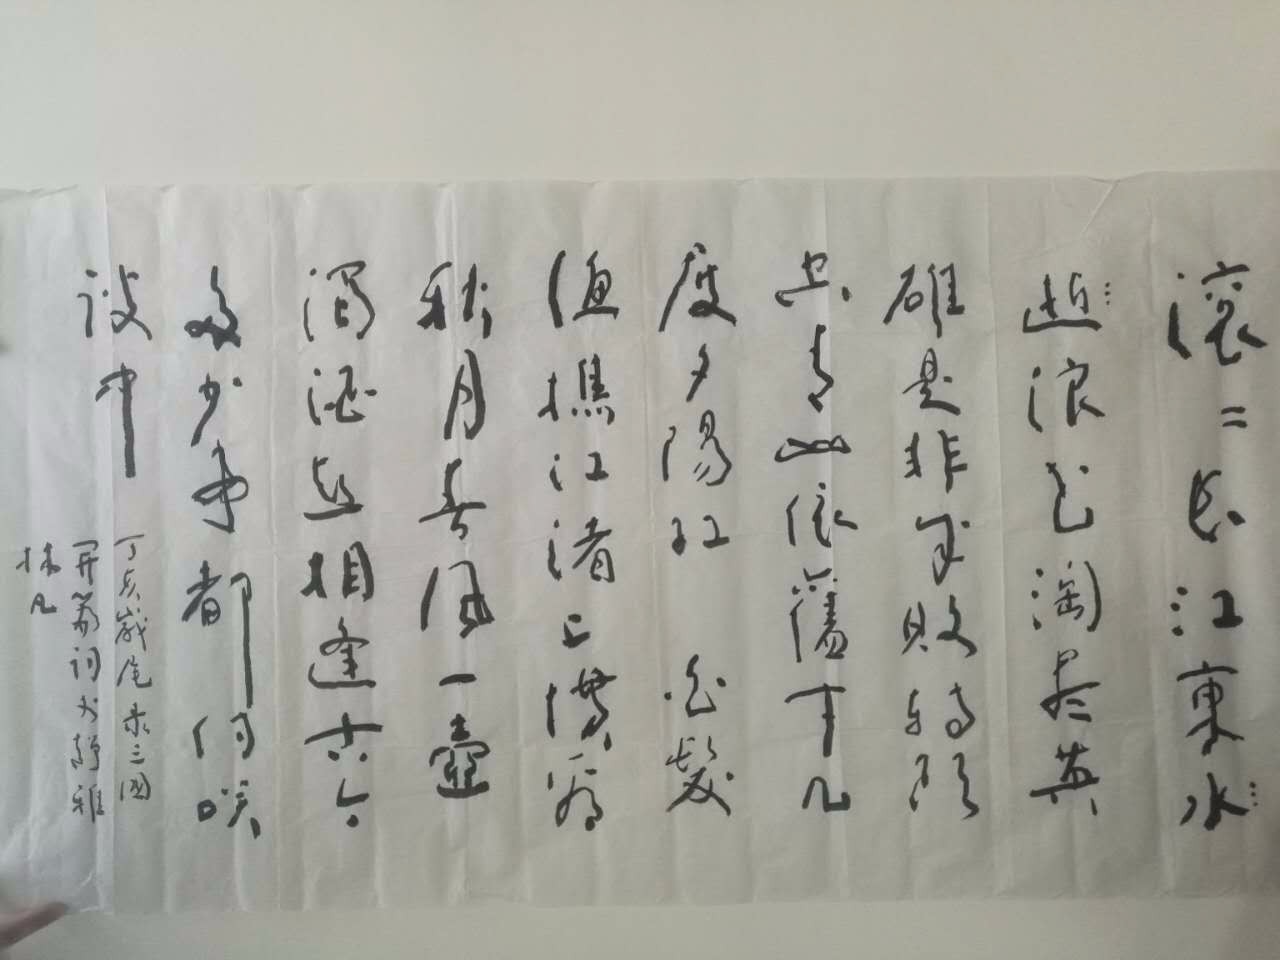 滚〻长江東水
逝浪花淘尽英
雄是非成败轉頭
空青山依舊在几
度夕陽红 白髮
渔樵江渚上惯看
秋月春风一壶
濁酒喜相逢古今
多少事都付笑
谈中
丁亥歲尾录三國
開篇词于静雅
林凡